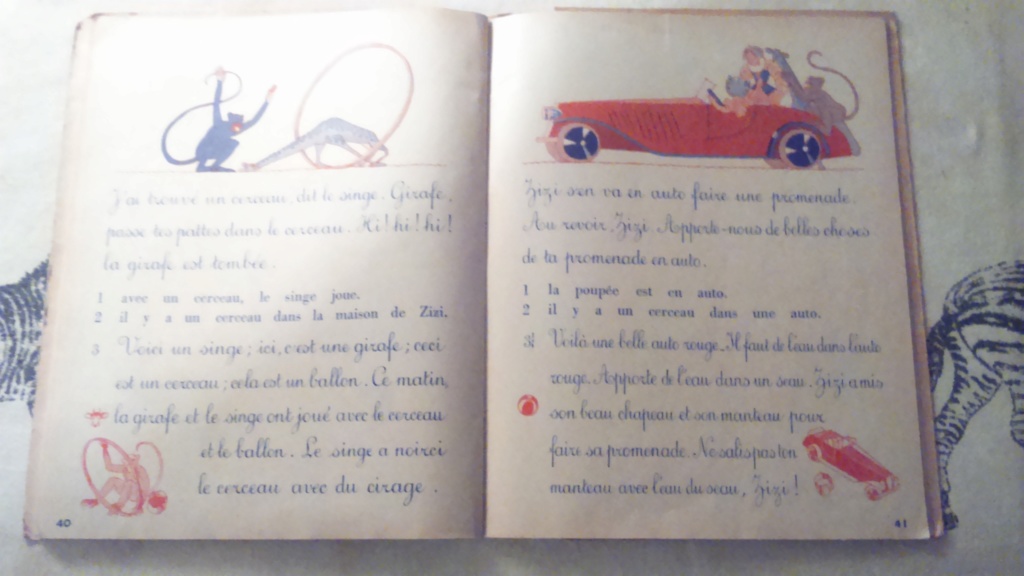 J'ai trouvé un cerceau, dit le singe. Girafe,
passe tes pattes dans le cerceau. Hi! hi! hi!
la girafe est tombée.
1 avec un cerceau, le singe joue.
2 il y a un cerceau dans la maison de Zizi.
3 Voici un singe; ici, c'est une girafe; ceci
est un cerceau; cela est un ballon. Ce matin,
la girafe et le singe ont joué avec le cerceau
et le ballon. Le singe a noirci
le cerceau avec du cirage.
40
Zizi s'en va en auto faire une promenade.
Au revoir, Zizi. Apporte-nous de belles choses
de ta promenade en auto.
1 la poupée est en auto.
2 il y a un cerceau dans une auto.
3 Voilà une belle auto rouge. Il faut de l'eau dans l'auto
rouge. Apporte de l'eau dans un seau. Zizi a mis
son beau chapeau et son manteau pour
faire sa promenade. Ne salis pas ton
manteau avec l'eau du seau, Zizi!
41